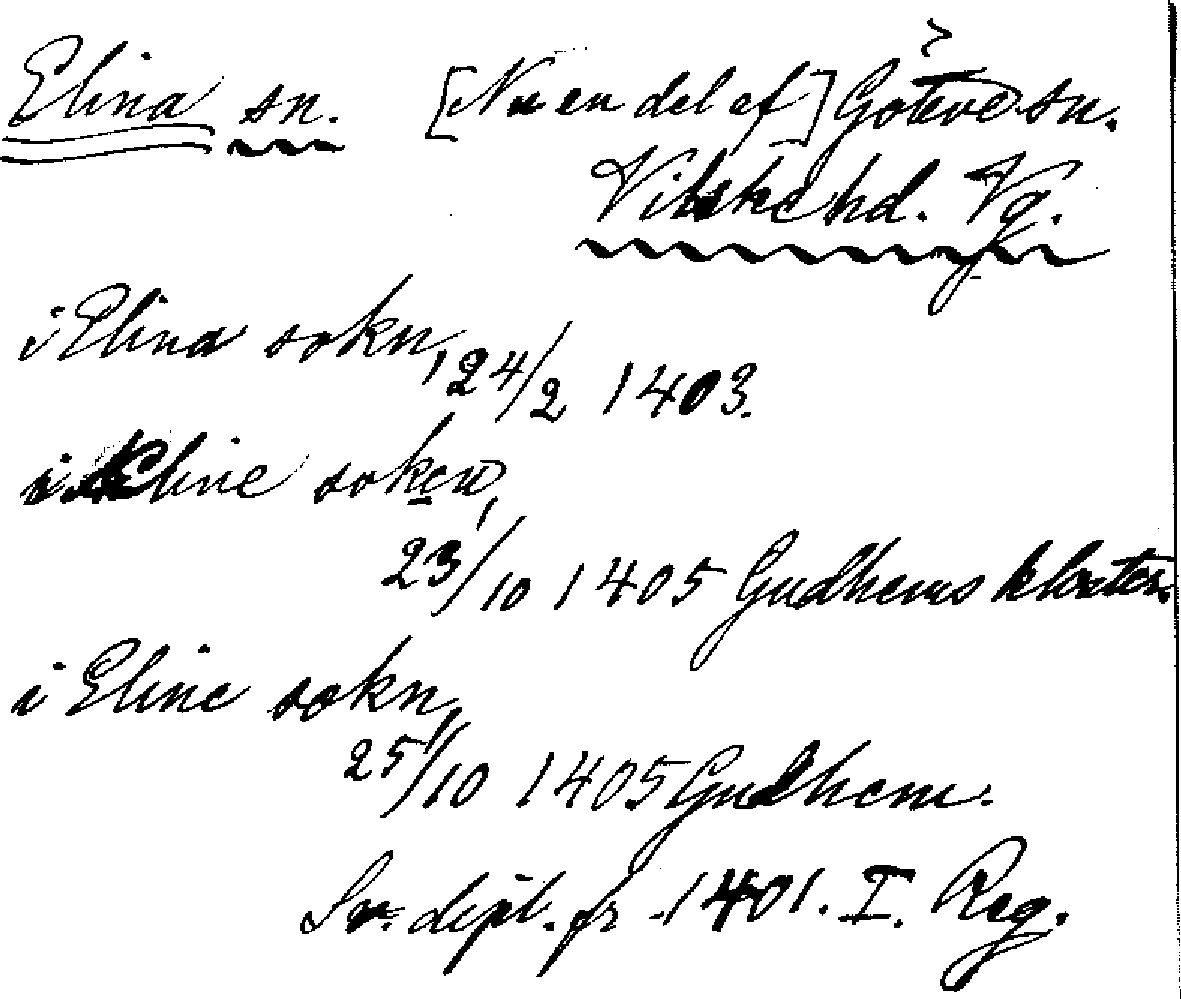 Elina sn. [Nu en del af] Göteve sn.
Vilske hd. Vg.
i Elina sokn, 24/2 1403.
i Eline soken,
23/10 1405 Gudhems kloster.
i Eline sokn,
25/10 1405 Gudhem.
Sv. dipl. fr 1401. I. Reg.